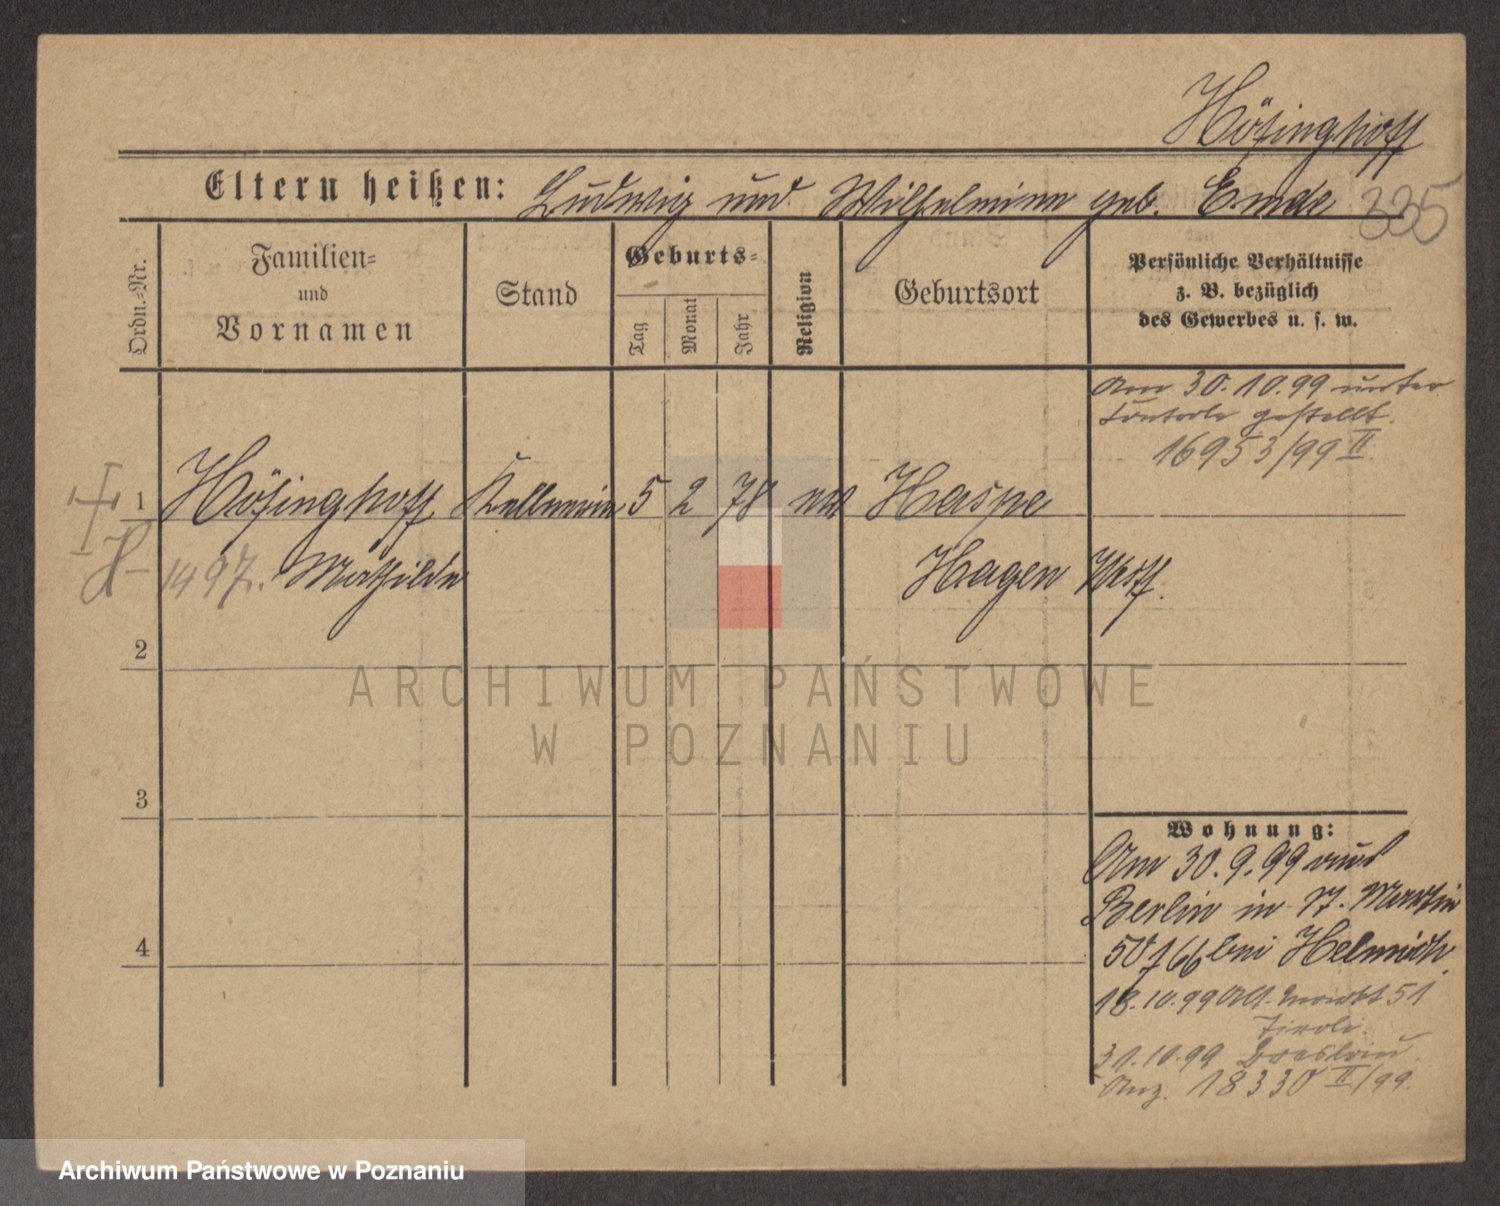 Hösinghoff
Eltern heißen: Ludwig und Wilhelmine geb. Emde 335
Ordn.=Nr.
Familien=
und
Vornamen
Stand
Geburts=
Tag
Monat
Jahr
Religion
Geburtsort
Persönliche Verhältnisse
z. B. bezüglich
des Gewerbes u. s. w.
Am 30.10.99 unter
Controle gestellt.
16953/99 II.
1 Hösinghoff Kellnerin 5 2 78 Haspe
1497. Mathilde Hagen Westf.
2
3
4
Wohnung:
Am 30.9.99 aus
Berlin in Martin
bei Helmich
18.10.99 Alt. Markt 51
Tivoli.
31.10.99 Breslau
Anz. 18330 II/99.
ARCHIWUM PAŃSTWOWE
W POZNANIU
Archiwum Państwowe w Poznaniu